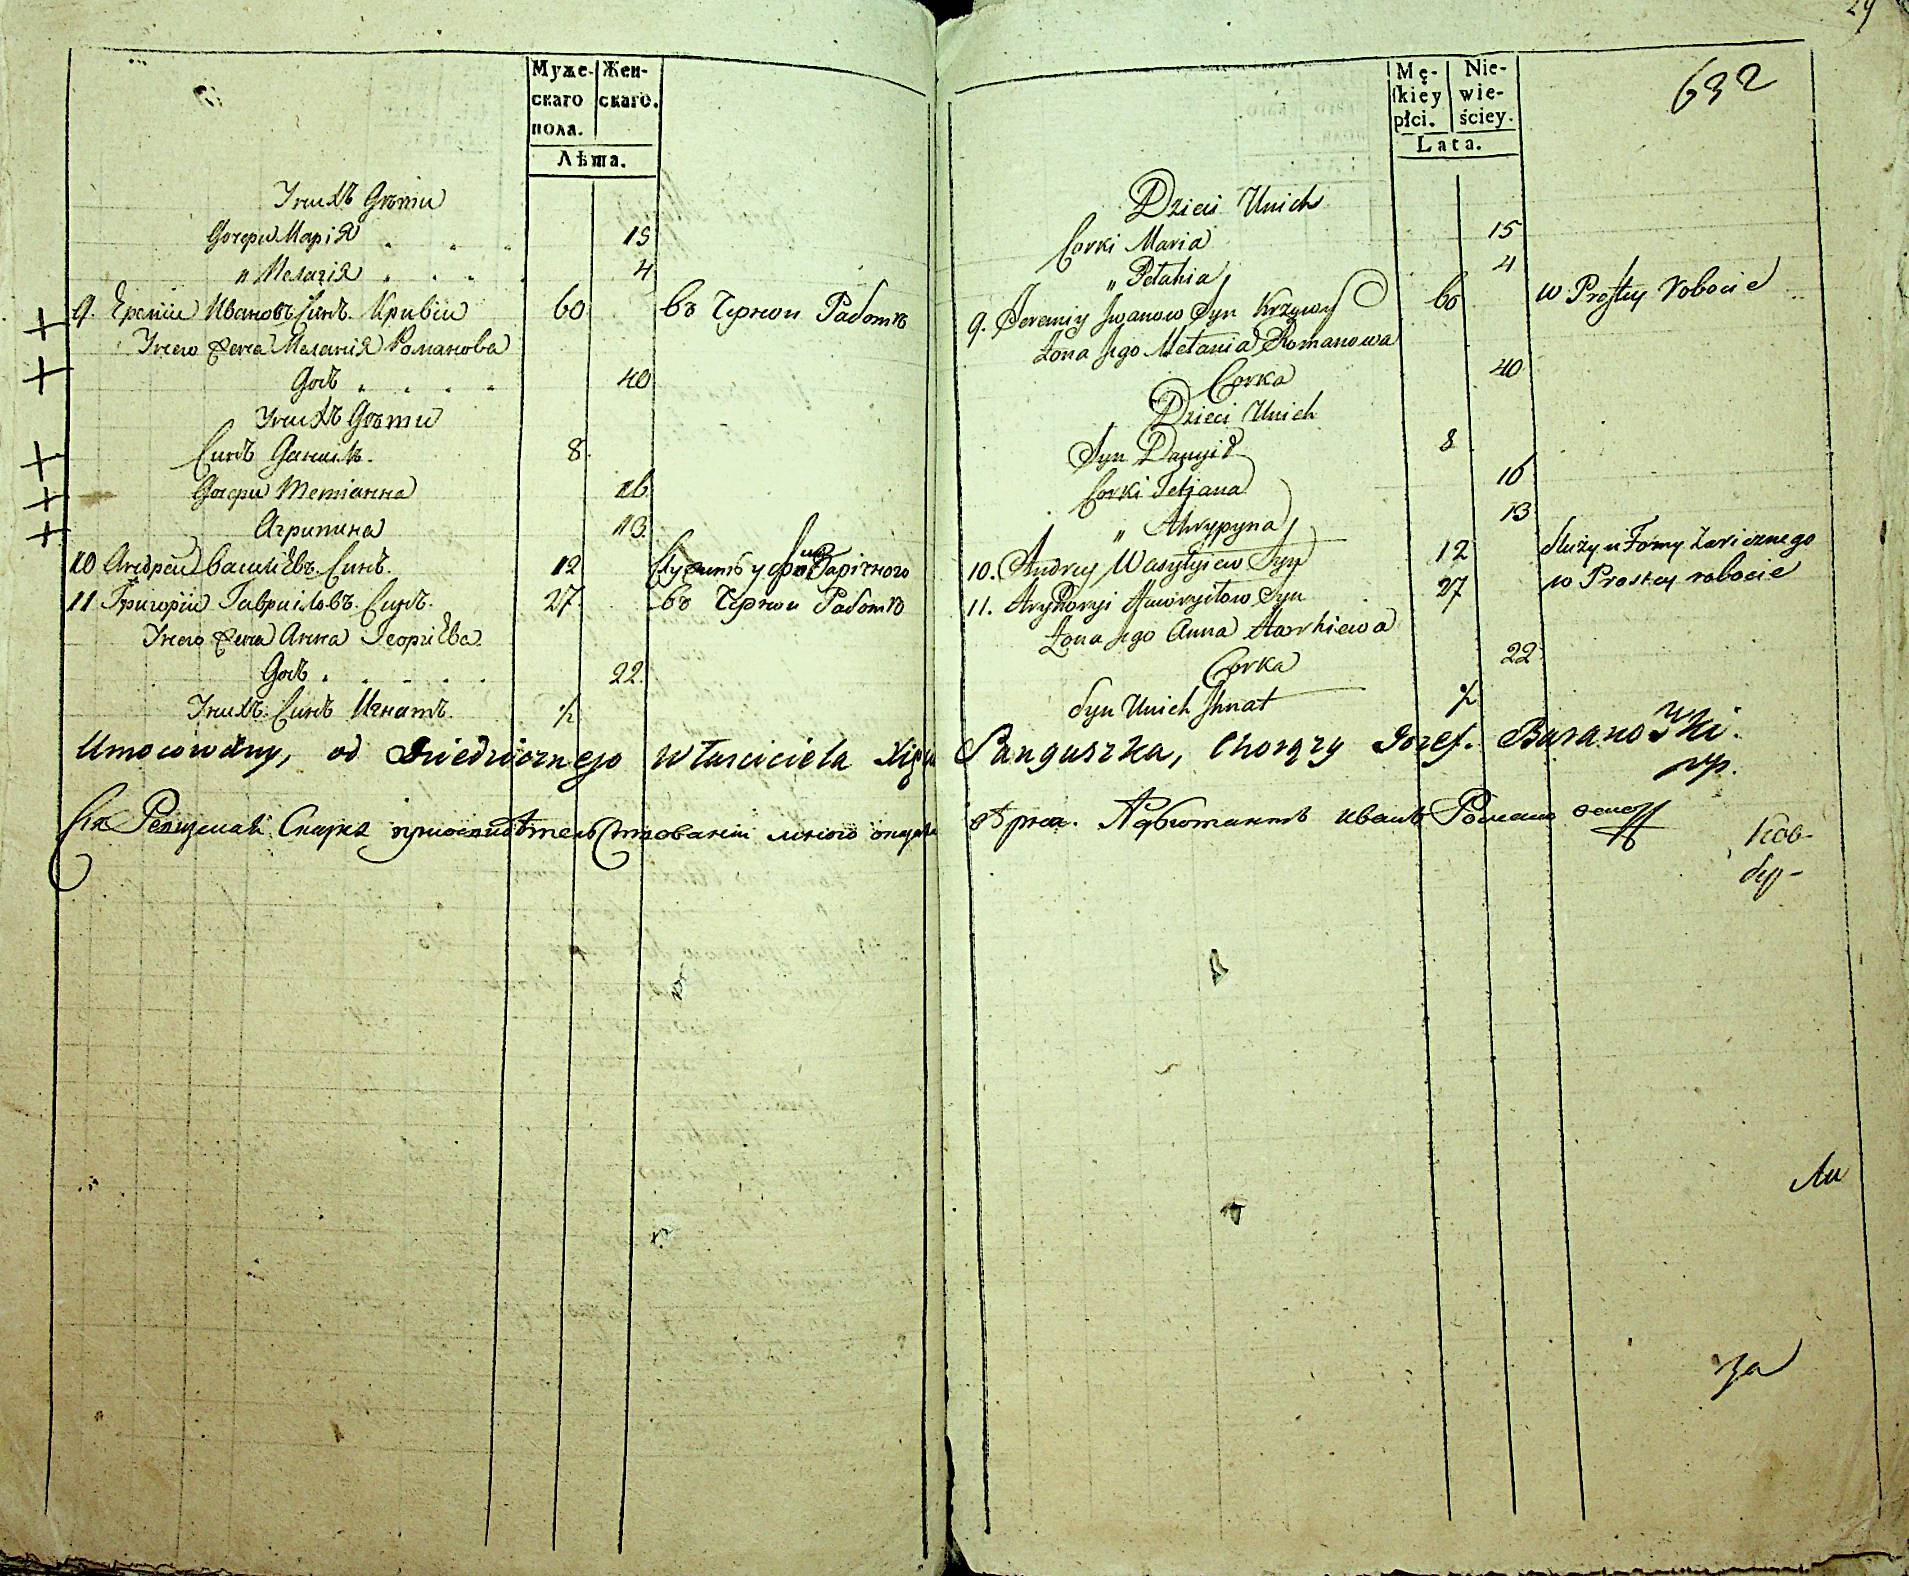 Муже- Жен-
скаго скаго.
пола.
Лѣта.
У нихъ Дѣти
Дочери Марія 15
„ Пелагія 4
9. Еремій Ивановъ Синъ Кривій 60 въ Черной Работѣ
У него Жена Меланія Романова
Дочь 40
У нихъ Дѣти
Синъ Данило 8
Дочери Тетіанна 16
Агрипина 13
10 Андрей Василіевъ Синъ. 12 Служитъ у Зарічного
11 Григорій Гавриіловъ Синъ. 27 въ Черной Работѣ
У него Жена Анна Георгіева
Дочь 22
У нихъ Синъ Игнатъ ½
Mę- Nie-
skiey wie-
płci. ściey.
Lata.
632
Dzieci Unich
Corki Maria 15
„ Pełahia 4
9. Jeremiy Iwanow Syn Krzywy 60 w Prostey Robocie
Żona Jego Mełania Romanowa
Corka 40
Dzieci Unich
Syn Danyił 8
Corki Tetjana 16
„ Ahrypyna 13
10. Andrey Wasylyiew Syn 12 Służy u Fomy Zaricznego
11. Hryhoryi Hawryiłow Syn 27 w Prostey robocie
Żona Jego Anna Harhiewa
Corka 22
Syn Unich Ihnat ½
Umocowany, od Dziedzicznego Własciciela Xięcia Sanguszka, Chorąży Jozef Baranowski.
mp.
Сія Ревизская Скаска при Адъютантъ Иванъ
за